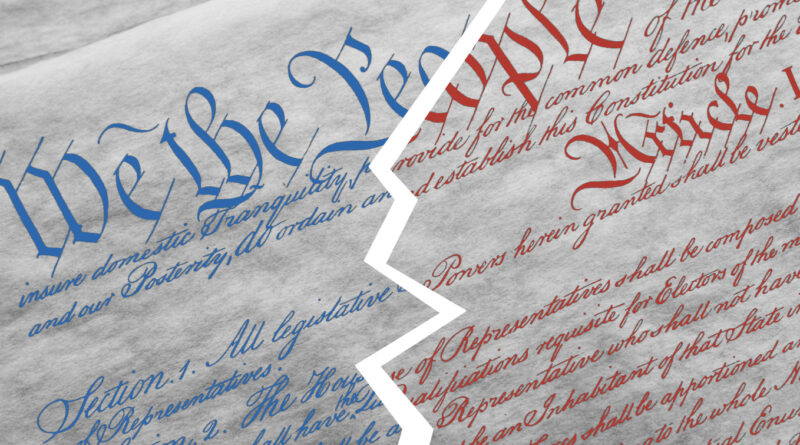 We the People of the
insure domestic Tranquility, provide for the common defence, promo
and our Posterity, do ordain and establish this Constitution for the
Article. I
Section. 1. All legislative Powers herein granted shall be vest
of Representatives.
Section. 2. The House of Representatives shall be composed
shall have the Qualifications requisite for Electors of the m
Representative who shall not have
be an Inhabitant of that State
shall be apportioned
to the whole